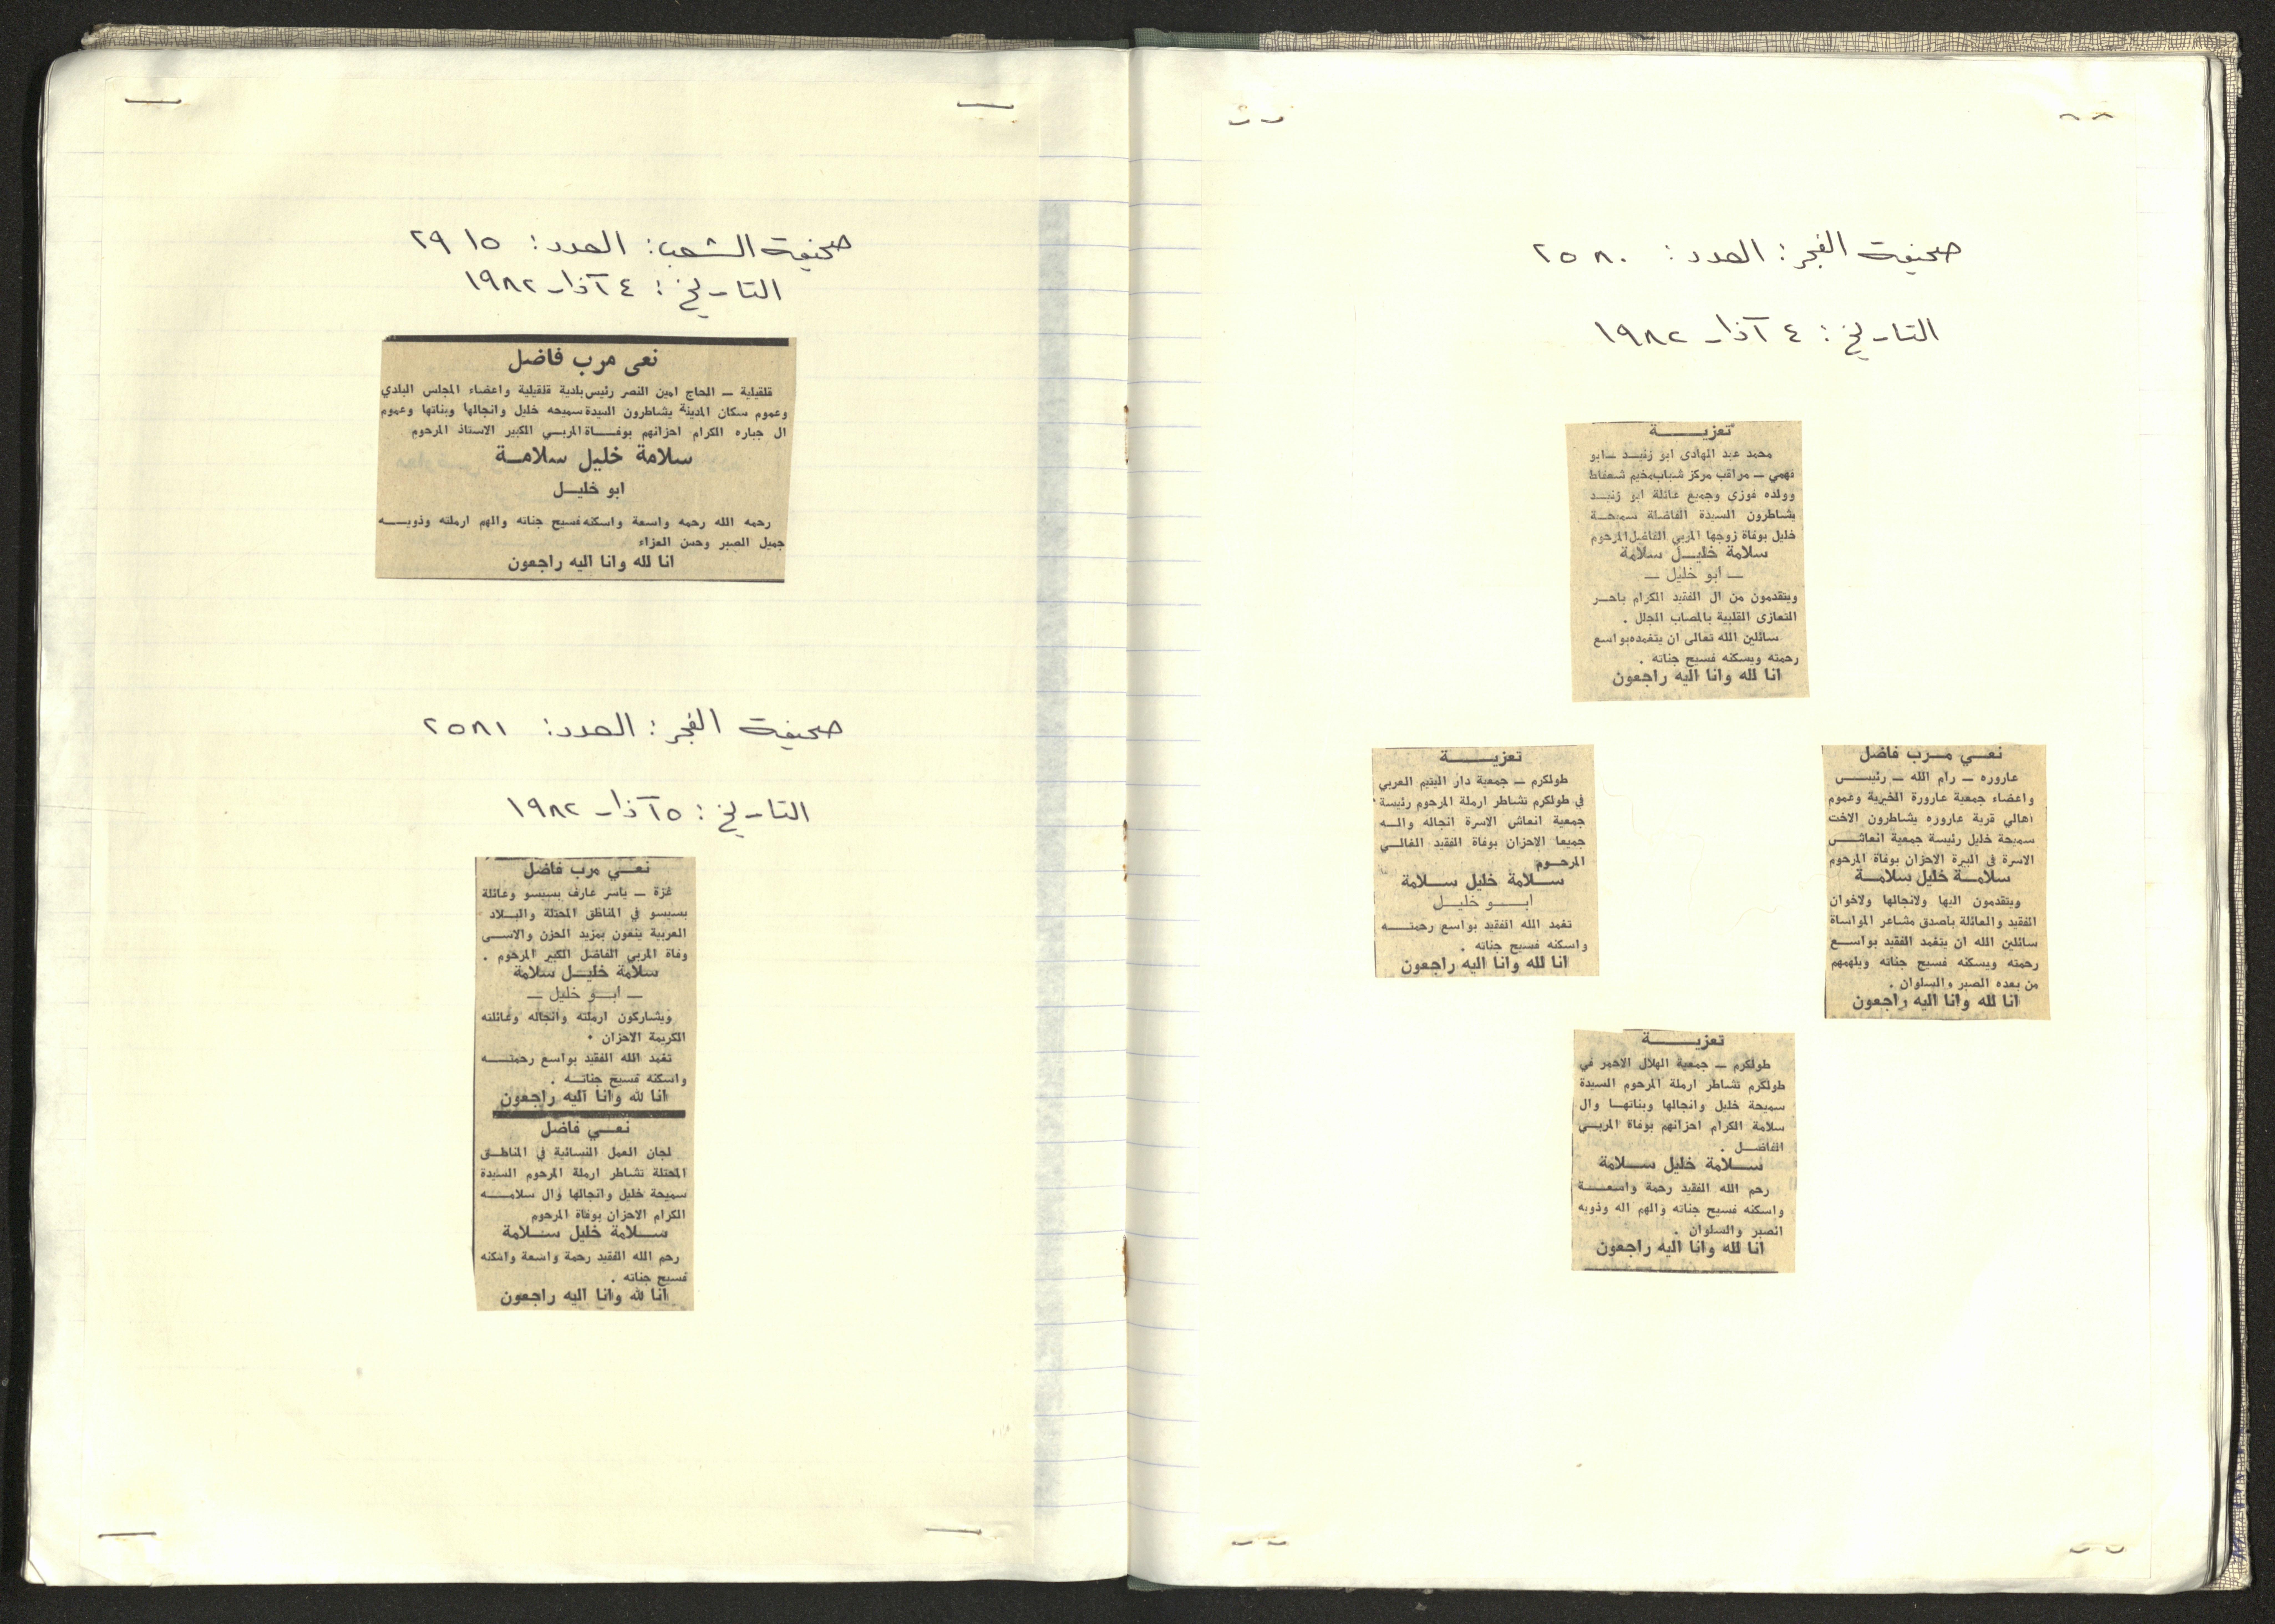 صحيفة الفجر: العدد: ٢٥٨٠
التاريخ: ٤ آذار ١٩٨٢
تعزيـــــة
محمد عبد الهادي ابو زنيـد ـ ابو
فهمي ـ مراقب مركز شباب مخيم شعفاط
وولده فوزي وجميع عائلة ابو زنيـد
يشاطرون السيدة الفاضلة سميحـة
خليل بوفاة زوجها المربي الفاضل المرحوم
سلامة خليـل سلامة
ـ ابو خليل ـ
ويتقدمون من ال الفقيد الكرام باحـر
التعازي القلبية بالمصاب الجلل .
سائلين الله تعالى ان يتغمده بواسع
رحمته ويسكنه فسيح جناته .
انا لله وانا اليه راجعون
نعــي مــرب فاضل
عاروره ـ رام الله ـ رئيـــس
واعضاء جمعية عارورة الخيرية وعموم
اهالي قرية عاروره يشاطرون الاخت
سميحة خليل رئيسة جمعية انعاش
الاسرة في البيرة الاحزان بوفاة المرحوم
سلامــة خليل سلامــة
ويتقدمون اليها ولانجالها ولاخوان
الفقيد والعائلة باصدق مشاعر المواساة
سائلين الله ان يتغمد الفقيد بواسـع
رحمته ويسكنه فسيح جناته ويلهمهم
من بعده الصبر والسلوان .
انا لله وانا اليه راجعون
تعزيـــــة
طولكرم ـ جمعية دار اليتيم العربي
في طولكرم تشاطر ارملة المرحوم رئيسة
جمعية انعاش الاسرة انجاله والـه
جميعا الاحزان بوفاة الفقيد الغالـي
المرحـوم
ســلامة خليل ســلامة
ابـــو خليــل
تغمد الله الفقيد بواسع رحمتــه
واسكنه فسيح جناته .
انا لله وانا اليه راجعون
تعزيـــــة
طولكرم ـ جمعية الهلال الاحمر في
طولكرم تشاطر ارملة المرحوم السيدة
سميحة خليل وانجالها وبناتهـا وال
سلامة الكرام احزانهم بوفاة المربـي
الفاضـل .
ســلامة خليل ســلامة
رحم الله الفقيد رحمة واسعــة
واسكنه فسيح جناته والهم اله وذويه
الصبر والسلوان .
انا لله وانا اليه راجعون
صحيفة الشعب: العدد: ٢٩١٥
التاريخ: ٤ آذار ١٩٨٢
نعى مرب فاضل
قلقيلية ـ الحاج امين النصر رئيس بلدية قلقيلية واعضاء المجلس البلدي
وعموم سكان المدينة يشاطرون السيدة سميحه خليل وانجالها وبناتها وعموم
ال جباره الكرام احزانهم بوفــاة المربـي الكبير الاستاذ المرحوم
سلامة خليل سلامـة
ابو خليـل
رحمه الله رحمه واسعة واسكنه فسيح جناته والهم ارملته وذويــه
جميل الصبر وحسن العزاء
انا لله وانا اليه راجعون
صحيفة الفجر: العدد: ٢٥٨١
التاريخ: ٥ آذار ١٩٨٢
نعــي مرب فاضل
غزة ـ ياسر عارف بسيسو وعائلة
بسيسو في المناطق المحتلة والبـلاد
العربية ينعون بمزيد الحزن والاسـى
وفاة المربي الفاضل الكبير المرحوم .
سلامة خليـل سلامة
ـ ابــو خليل ـ
ويشاركون ارملته وانجاله وعائلته
الكريمة الاحزان .
تغمد الله الفقيد بواسع رحمتــه
واسكنه فسيح جناتــه .
انا لله وانا اليه راجعون
نعــي فاضل
لجان العمل النسائية في المناطـق
المحتلة تشاطر ارملة المرحوم السيدة
سميحة خليل وانجالها وال سلامــه
الكرام الاحزان بوفاة المرحوم
ســلامة خليل ســلامة
رحم الله الفقيد رحمة واسعة واسكنه
فسيح جناته .
انا لله وانا اليه راجعون